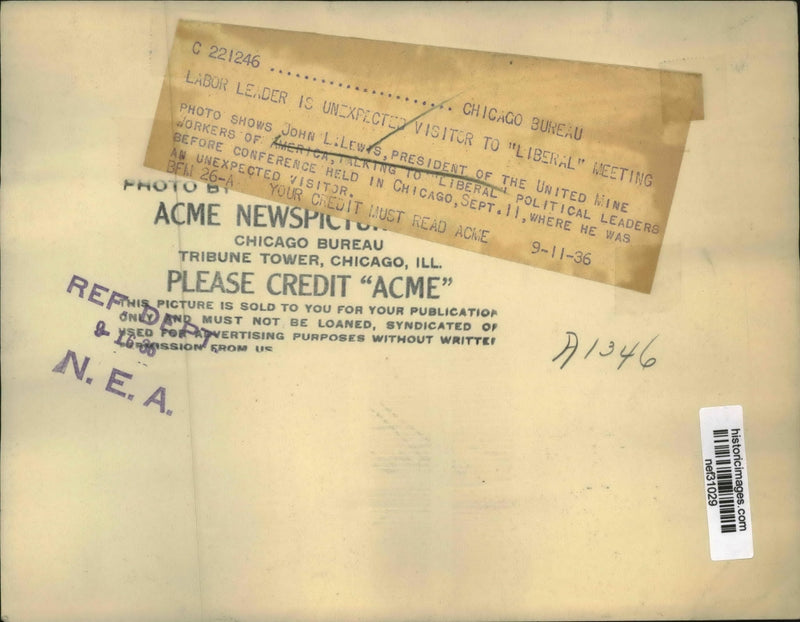 C 221246 ...................... CHICAGO BUREAU
LABOR LEADER IS UNEXPECTED VISITOR TO "LIBERAL" MEETING
PHOTO SHOWS JOHN L. LEWIS, PRESIDENT OF THE UNITED MINE
WORKERS OF AMERICA, TALKING TO "LIBERAL" POLITICAL LEADERS
BEFORE CONFERENCE HELD IN CHICAGO, SEPT. 11, WHERE HE WAS
AN UNEXPECTED VISITOR.
BFN 26-A YOUR CREDIT MUST READ ACME 9-11-36
PHOTO BY
ACME NEWSPICTU
CHICAGO BUREAU
TRIBUNE TOWER, CHICAGO, ILL.
PLEASE CREDIT "ACME"
THIS PICTURE IS SOLD TO YOU FOR YOUR PUBLICATION
ONLY AND MUST NOT BE LOANED, SYNDICATED OR
USED FOR ADVERTISING PURPOSES WITHOUT WRITTEN
PERMISSION FROM US
REF. DEPT.
N. E. A.
A1346
historicimages.com
nef31029